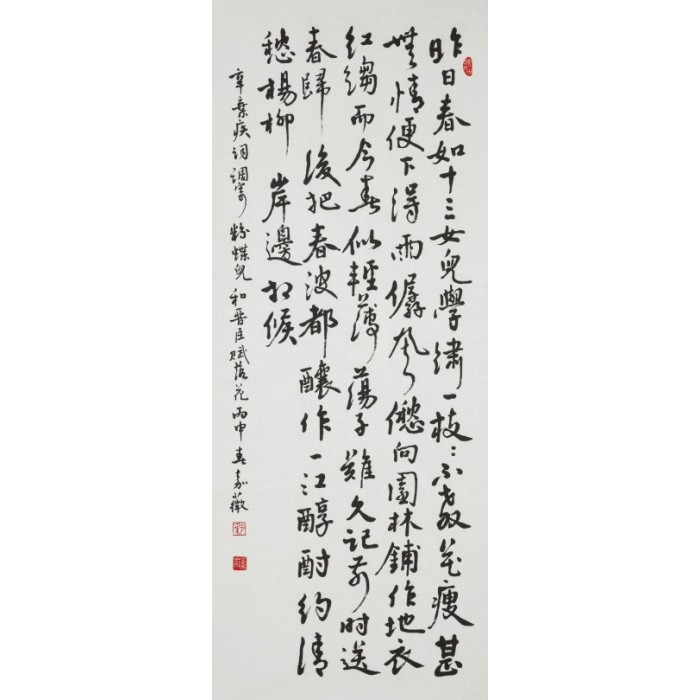 昨日春如十三女兒學繡一枝：不教花瘦甚
無情便下得雨僝風僽向園林鋪作地衣
紅縐而今春似輕薄蕩子難久記前時送
春歸後把春波都釀作一江醇酎約清
愁楊柳岸邊相候
辛棄疾詞調寄粉蝶兒和晉臣賦落花丙申春嘉薇